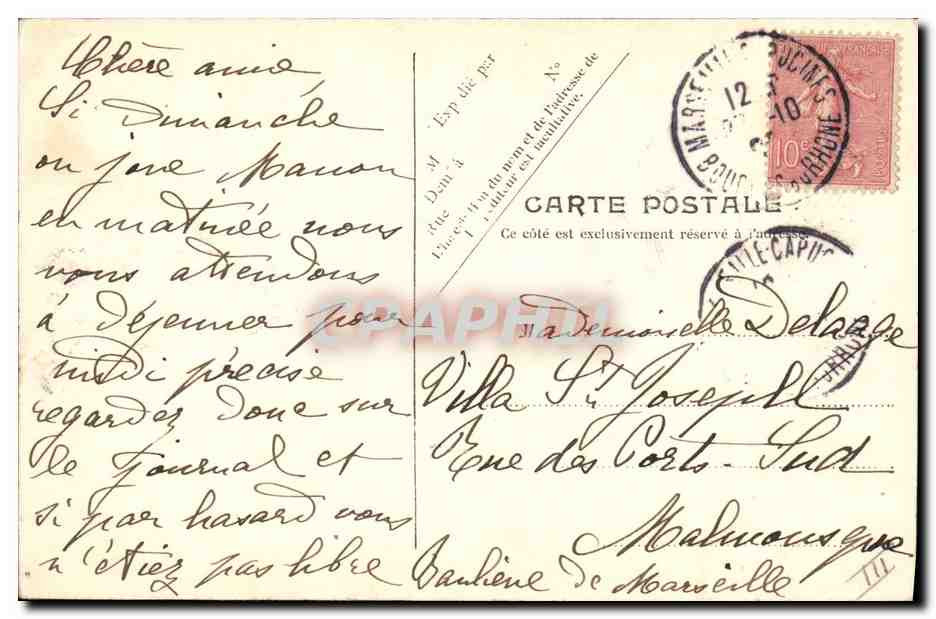 Chère amie,
Si Dimanche
on joue Manon
en matinée nous
vous attendons
à déjeuner pour
midi précise
regardez donc sur
le journal et
si par hasard vous
n'étiez pas libre
Expédié par
M
Dem' à
Rue
N°
du nom et de l'adresse de
l'auteur est facultative.
CARTE POSTALE
Ce côté est exclusivement réservé à l'adresse.
MARSEILLE CAPUCINES
12
10
BOUCHES DU RHONE
FRANÇAISE
10c
POSTES
EILLE-CAPUC
DU RHONE
CPAPHIL
Mademoiselle Delaage
Villa St Joseph
Rue des Ports-Sud
Malmousque
Banlieue de Marseille
III